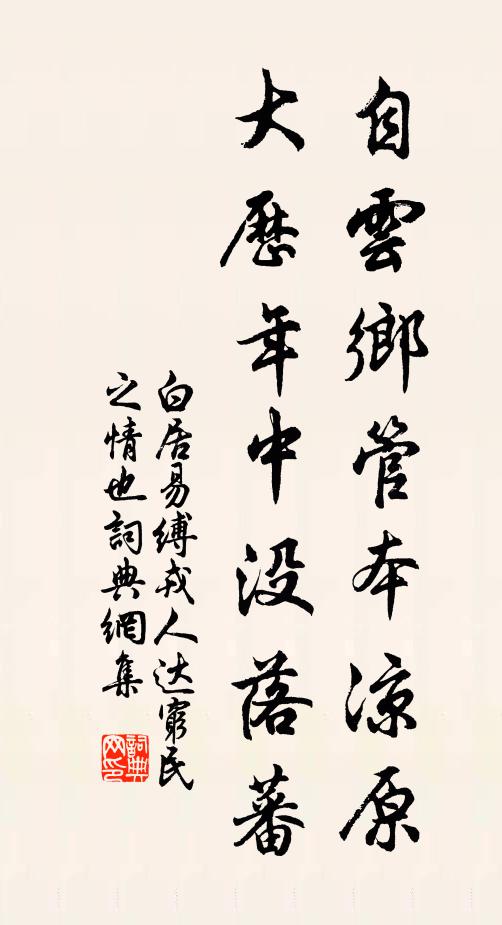 自雲鄉管本涼原
大歷年中没落蕃
白居易縛戎人达窮民
之情也詞典網集
詞典
网印